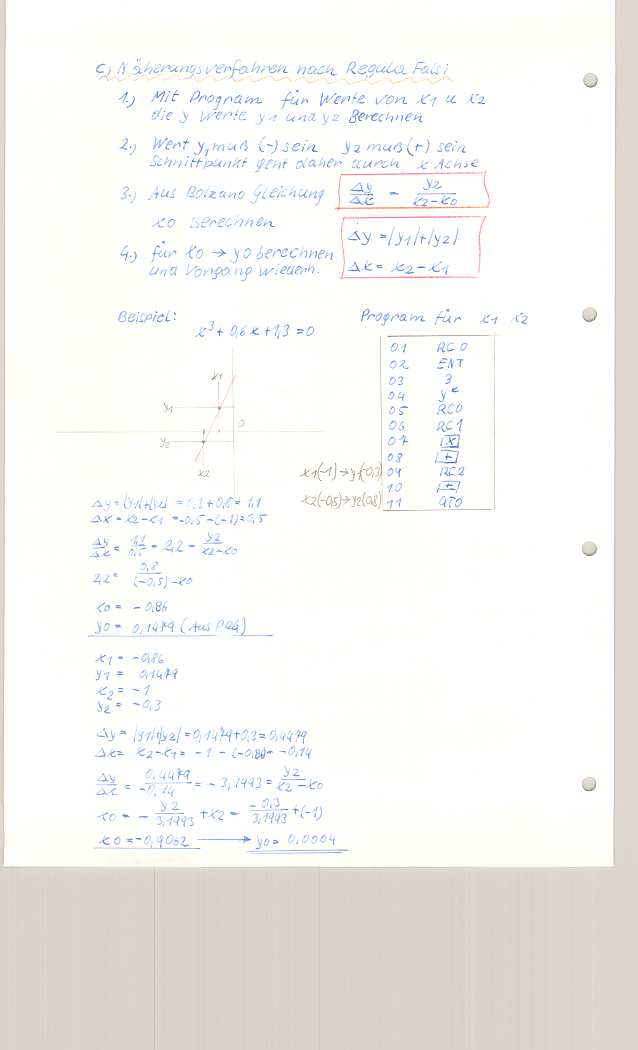 c) Näherungsverfahren nach Regula Falsi
1.) Mit Program für Werte von x1 u x2
die y Werte y1 und y2 Berechnen
2.) Wert y1 muß (-) sein y2 muß (+) sein
Schnittpunkt geht daher durch x Achse
3.) Aus Bolzano Gleichung Δy/Δx = y2/(x2-x0)
x0 berechnen
Δy = |y1|+|y2|
4.) für x0 → y0 berechnen
und Vorgang wiederh. Δx = x2-x1
Beispiel: Program für x1 x2
x³+0,6x+1,3=0
01 RC0
02 ENT
03 3
04 yˣ
05 RC0
06 RC1
07 x
08 +
09 RC2
10 +
11 GTO
x1
y1
0
y2
x2
x1(-1)→y1(-0,3)
x2(-0,5)→y2(0,8)
Δy=|y1|+|y2| = 0,3+0,8= 1,1
Δx = x2-x1 = -0,5-(-1)=0,5
Δy/Δx = 1,1/0,5 = 2,2 = y2/(x2-x0)
2,2 = 0,8/((-0,5)-x0)
x0 = -0,86
y0 = 0,1479 (Aus PRG)
x1 = -0,86
y1 = 0,1479
x2 = -1
y2 = -0,3
Δy = |y1|+|y2| = 0,1479+0,3=0,4479
Δx= x2-x1 = -1 -(-0,86)= -0,14
Δy/Δx = 0,4479/-0,14 = -3,1993 = y2/(x2-x0)
x0 = - y2/3,1993 + x2 = - -0,3/3,1993 +(-1)
x0 =-0,9062 → y0= 0,0004